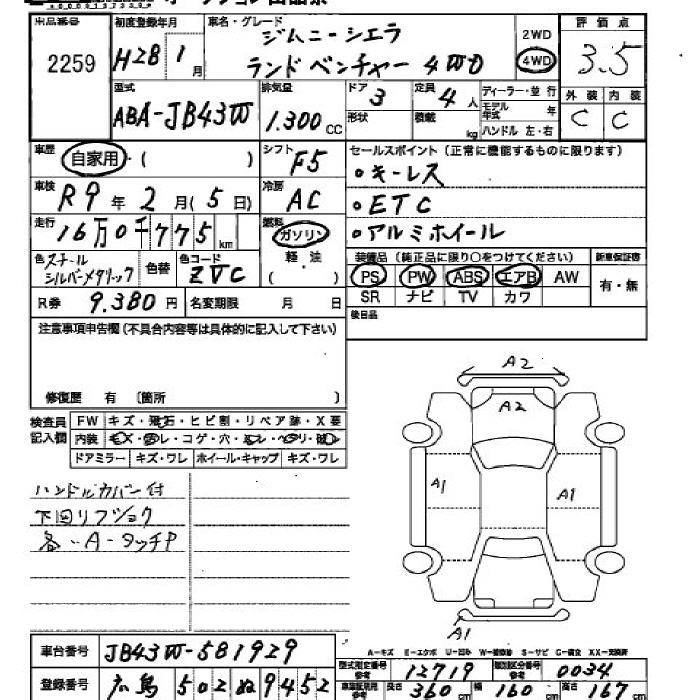 出品番号 初度登録年月 車名・グレード 2WD 評価点
2259 H28 1月 ジムニーシエラ
ランドベンチャー 4WD 4WD 3.5
型式 排気量 ドア 定員 ディーラー・並行 外装 内装
ABA-JB43W 1.300cc 3 4人 モデル年式 年 C C
形状 積載 kg ハンドル 左・右
車歴 自家用・( ) シフト F5 セールスポイント(正常に機能するものに限ります)
車検 R9年2月(5日) 冷房 AC ・キーレス
・ETC
走行 16万0千775km 燃料 ガソリン ・アルミホイール
軽油
( )
色 スチールシルバーメタリック 色替 色コード ZVC 装備品(純正品に限り○をつけてください) 新車保証書
PS PW ABS エアB AW 有・無
SR ナビ TV カワ
R券 9.380円 名変期限 月 日 後日品
注意事項申告欄(不具合内容等は具体的に記入して下さい)
修復歴 有 〔箇所 〕
検査員記入欄 FW キズ・飛石・ヒビ割・リペア跡・X要
内装
ドアミラー キズ・ワレ ホイール・キャップ キズ・ワレ
ハンドルカバー付
下回リフショク
各・A-タッチP
A2
A2
A1 A1
A1
A-キズ E-エクボ U-凹み W-補修跡 S-サビ C-腐食 XX-交換済
車台番号 JB43W-581929
型式指定番号 参考 12719 類別区分番号 参考 0034
登録番号 広島 502 ぬ 9452
車検証記載用 参考 長さ 360cm 幅 160cm 高さ 167cm